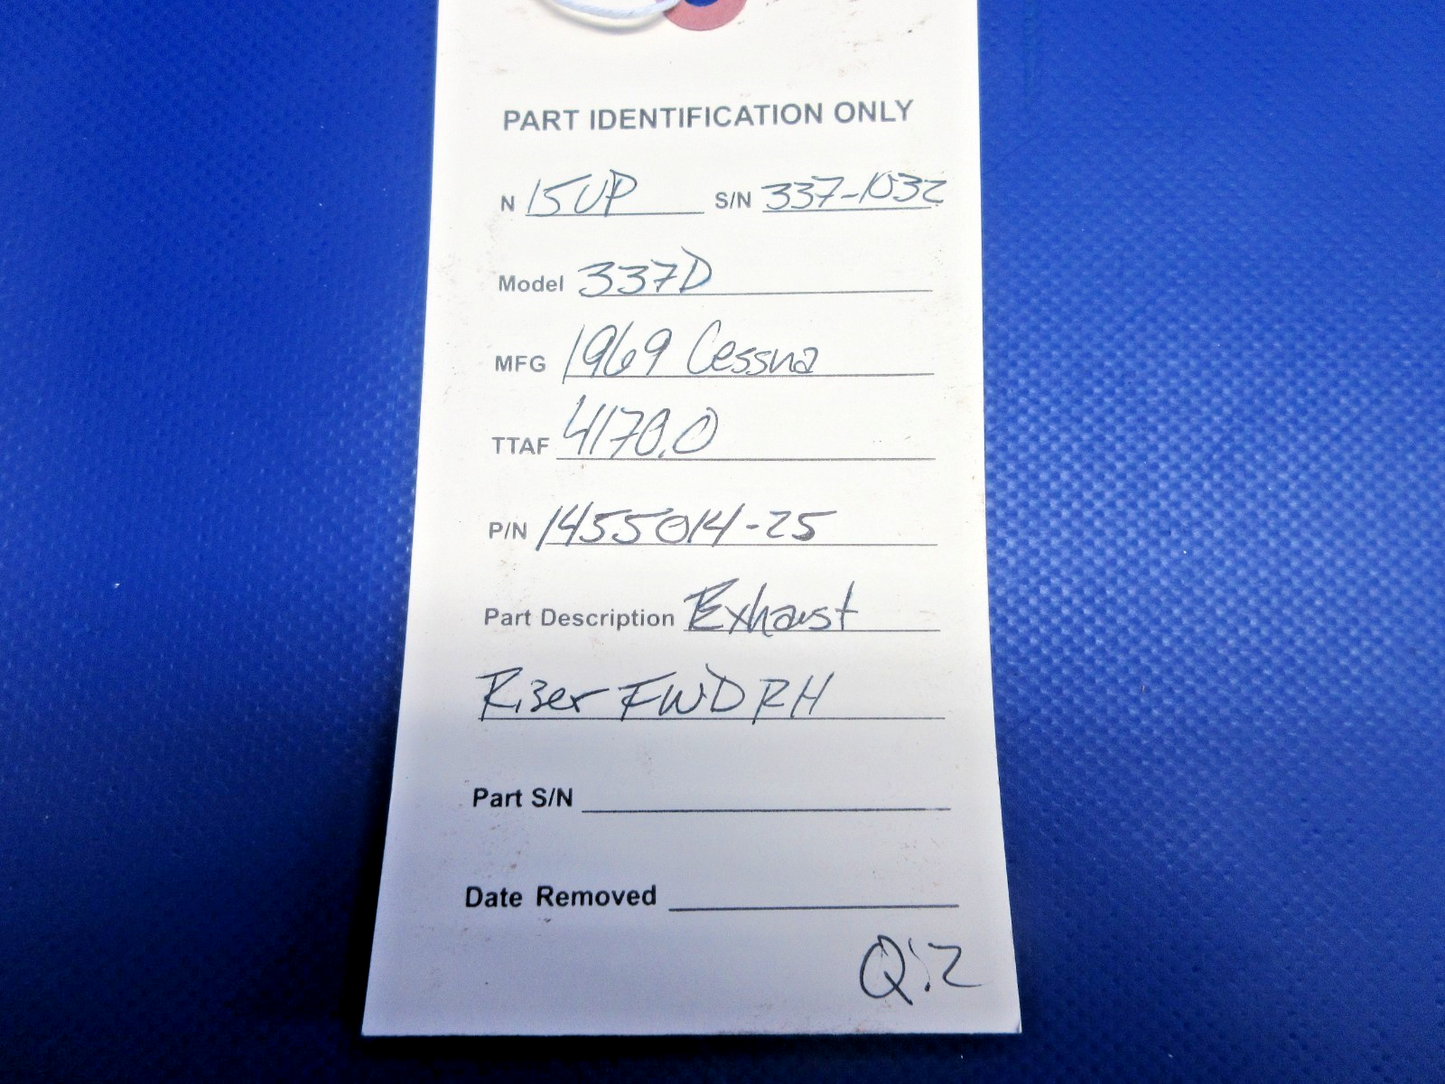 PART IDENTIFICATION ONLY
N 15UP S/N 337-1032
Model 337D
MFG 1969 Cessna
TTAF 4170.0
P/N 1455014-25
Part Description Exhaust
Riser FWD RH
Part S/N
Date Removed
Q:2